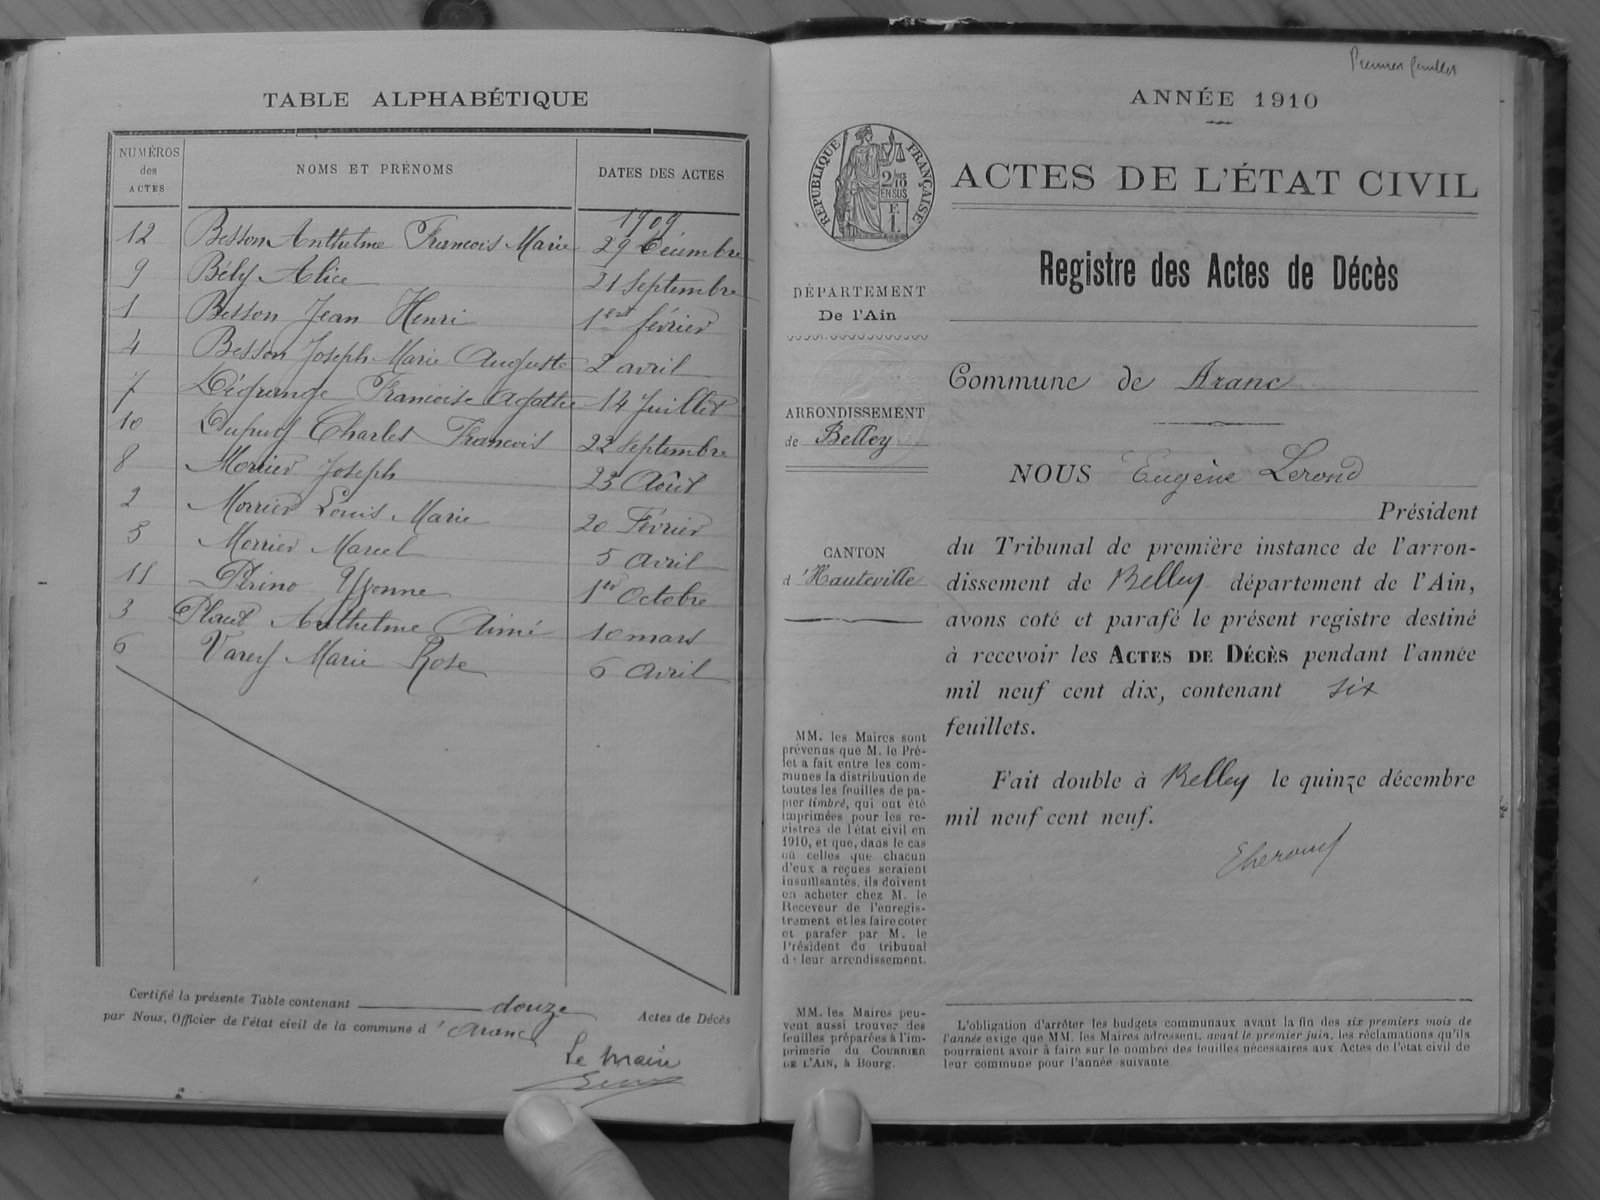 TABLE ALPHABÉTIQUE
NUMÉROS
des
ACTES
NOMS ET PRÉNOMS
DATES DES ACTES
1909
12 Besson Anthelme Francois Marie 29 Décembre
9 Bély Alice 21 Septembre
1 Besson Jean Henri 1er février
4 Besson Joseph Marie Auguste 2 avril
7 Dégrange Francoise Agathe 14 Juillet
10 Dupuy Charles Francois 22 septembre
8 Morrier Joseph 23 Août
2 Morrier Louis Marie 20 Février
5 Morrier Marcel 5 avril
11 Perino Yvonne 1er Octobre
3 Anthelme Aimé 10 mars
6 Varey Marie Rose 6 Avril
Certifié la présente Table contenant douze Actes de Décès
par Nous, Officier de l'état civil de la commune d'Aranc
Le Maire
Premier feuillet
ANNÉE 1910
RÉPUBLIQUE FRANÇAISE
2/10
EN SUS
ACTES DE L'ÉTAT CIVIL
Registre des Actes de Décès
DÉPARTEMENT
De l'Ain
ARRONDISSEMENT
de Belley
CANTON
d'Hauteville
MM. les Maires sont
prévenus que M. le Pré-
fet a fait entre les com-
munes la distribution de
toutes les feuilles de pa-
pier timbré, qui ont été
imprimées pour les re-
gistres de l'état civil en
1910, et que, dans le cas
où celles que chacun
d'eux a reçues seraient
insuffisantes, ils doivent
en acheter chez M. le
Receveur de l'enregis-
trement et les faire coter
et parafer par M. le
Président du tribunal
de leur arrondissement.
MM. les Maires peu-
vent aussi trouver des
feuilles préparées à l'im-
primerie du COURRIER
DE L'AIN, à Bourg.
Commune de Aranc
NOUS Eugène Lerond
Président
du Tribunal de première instance de l'arron-
dissement de Belley département de l'Ain,
avons coté et parafé le présent registre destiné
à recevoir les ACTES DE DÉCÈS pendant l'année
mil neuf cent dix, contenant six
feuillets.
Fait double à Belley le quinze décembre
mil neuf cent neuf.
L'obligation d'arrêter les budgets communaux avant la fin des six premiers mois de
l'année exige que MM. les Maires adressent, avant le premier juin, les réclamations qu'ils
pourraient avoir à faire sur le nombre des feuilles nécessaires aux Actes de l'état civil de
leur commune pour l'année suivante